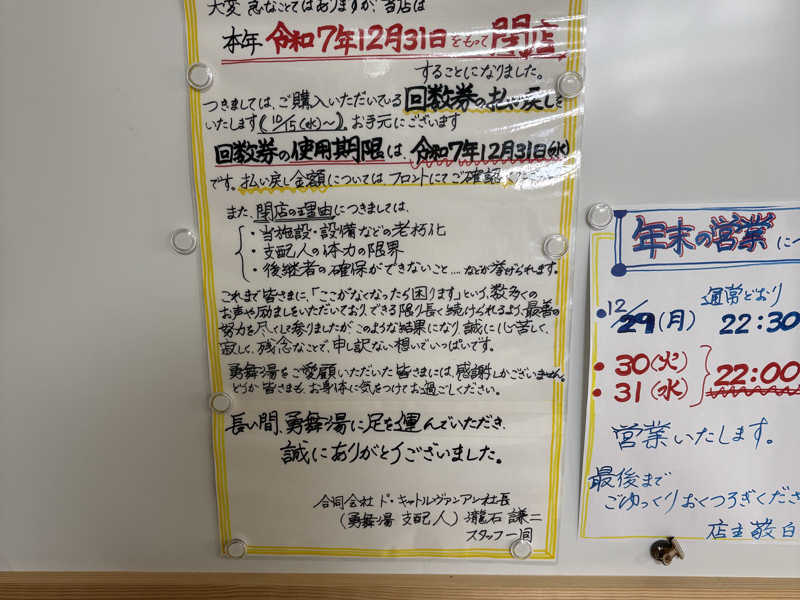 大変 急なことではありますが、当店は
本年 令和7年12月31日をもって閉店
することになりました。
つきましては、ご購入いただいている回数券の払い戻しを
いたします(10/15(水)~)。お手元にございます
回数券の使用期限は、令和7年12月31日(水)
です。払い戻し金額については、フロントにてご確認
また、閉店の理由につきましては、
・当施設・設備などの老朽化
・支配人の体力の限界
・後継者の確保ができないこと....などが挙げられます。
これまで皆さまに、「ここがなくなったら困ります」という、数多くの
お声や励ましをいただいており、できる限り長く続けられるよう、最善の
努力を尽くして参りましたが、このような結果になり、誠に心苦しく、
寂しく、残念なことで、申し訳ない想いでいっぱいです。
勇舞湯をご愛顧いただいた皆さまには、感謝しかございません。
どうか皆さまも、お身体に気をつけてお過ごしください。
長い間、勇舞湯に足を運んでいただき、
誠にありがとうございました。
合同会社 ド・キャトルヴァンアン社長
(勇舞湯 支配人) 瀧石 謙二
スタッフ一同
年末の営業に
・12/29(月) 通常どおり 22:30
・30(火)
・31(水) 22:00
営業いたします。
最後まで
ごゆっくりおくつろぎくださ
店主敬白